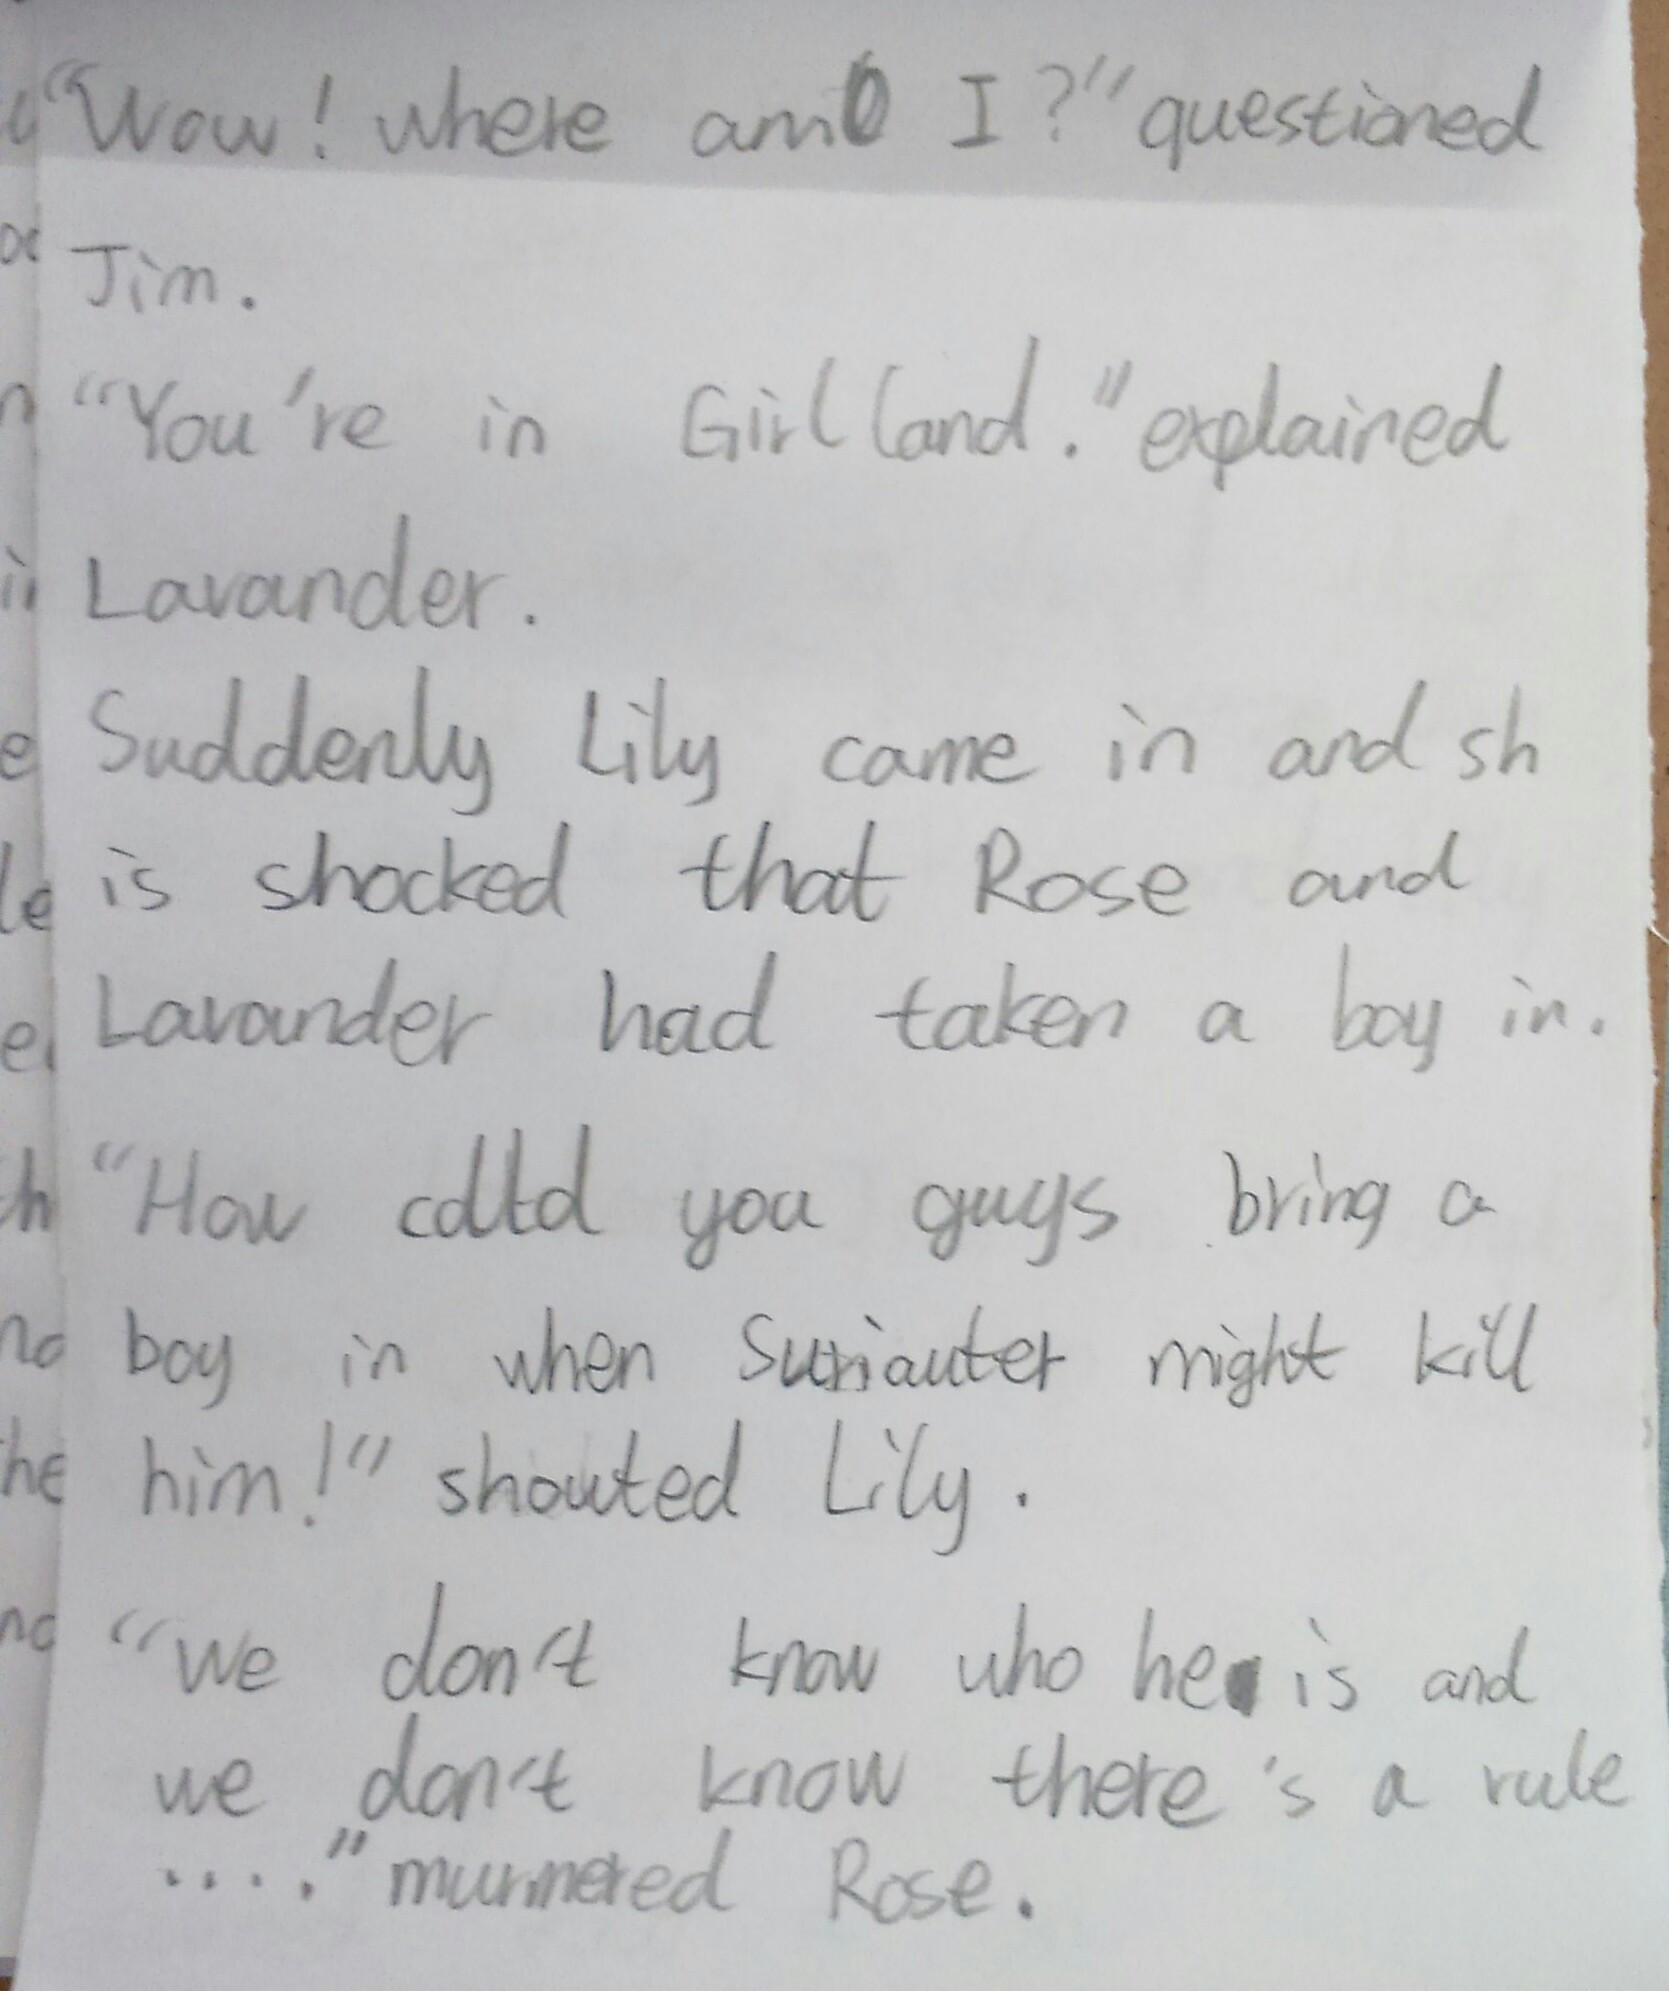 "Wow! where am I?" questioned
Jim.
"You're in Girl Land." explained
Lavander.
Suddenly Lily came in and sh
is shocked that Rose and
Lavander had taken a boy in.
"How could you guys bring a
boy in when might kill
him!" shouted Lily.
"We don't know who he is and
we don't know there's a rule
...." murmered Rose.